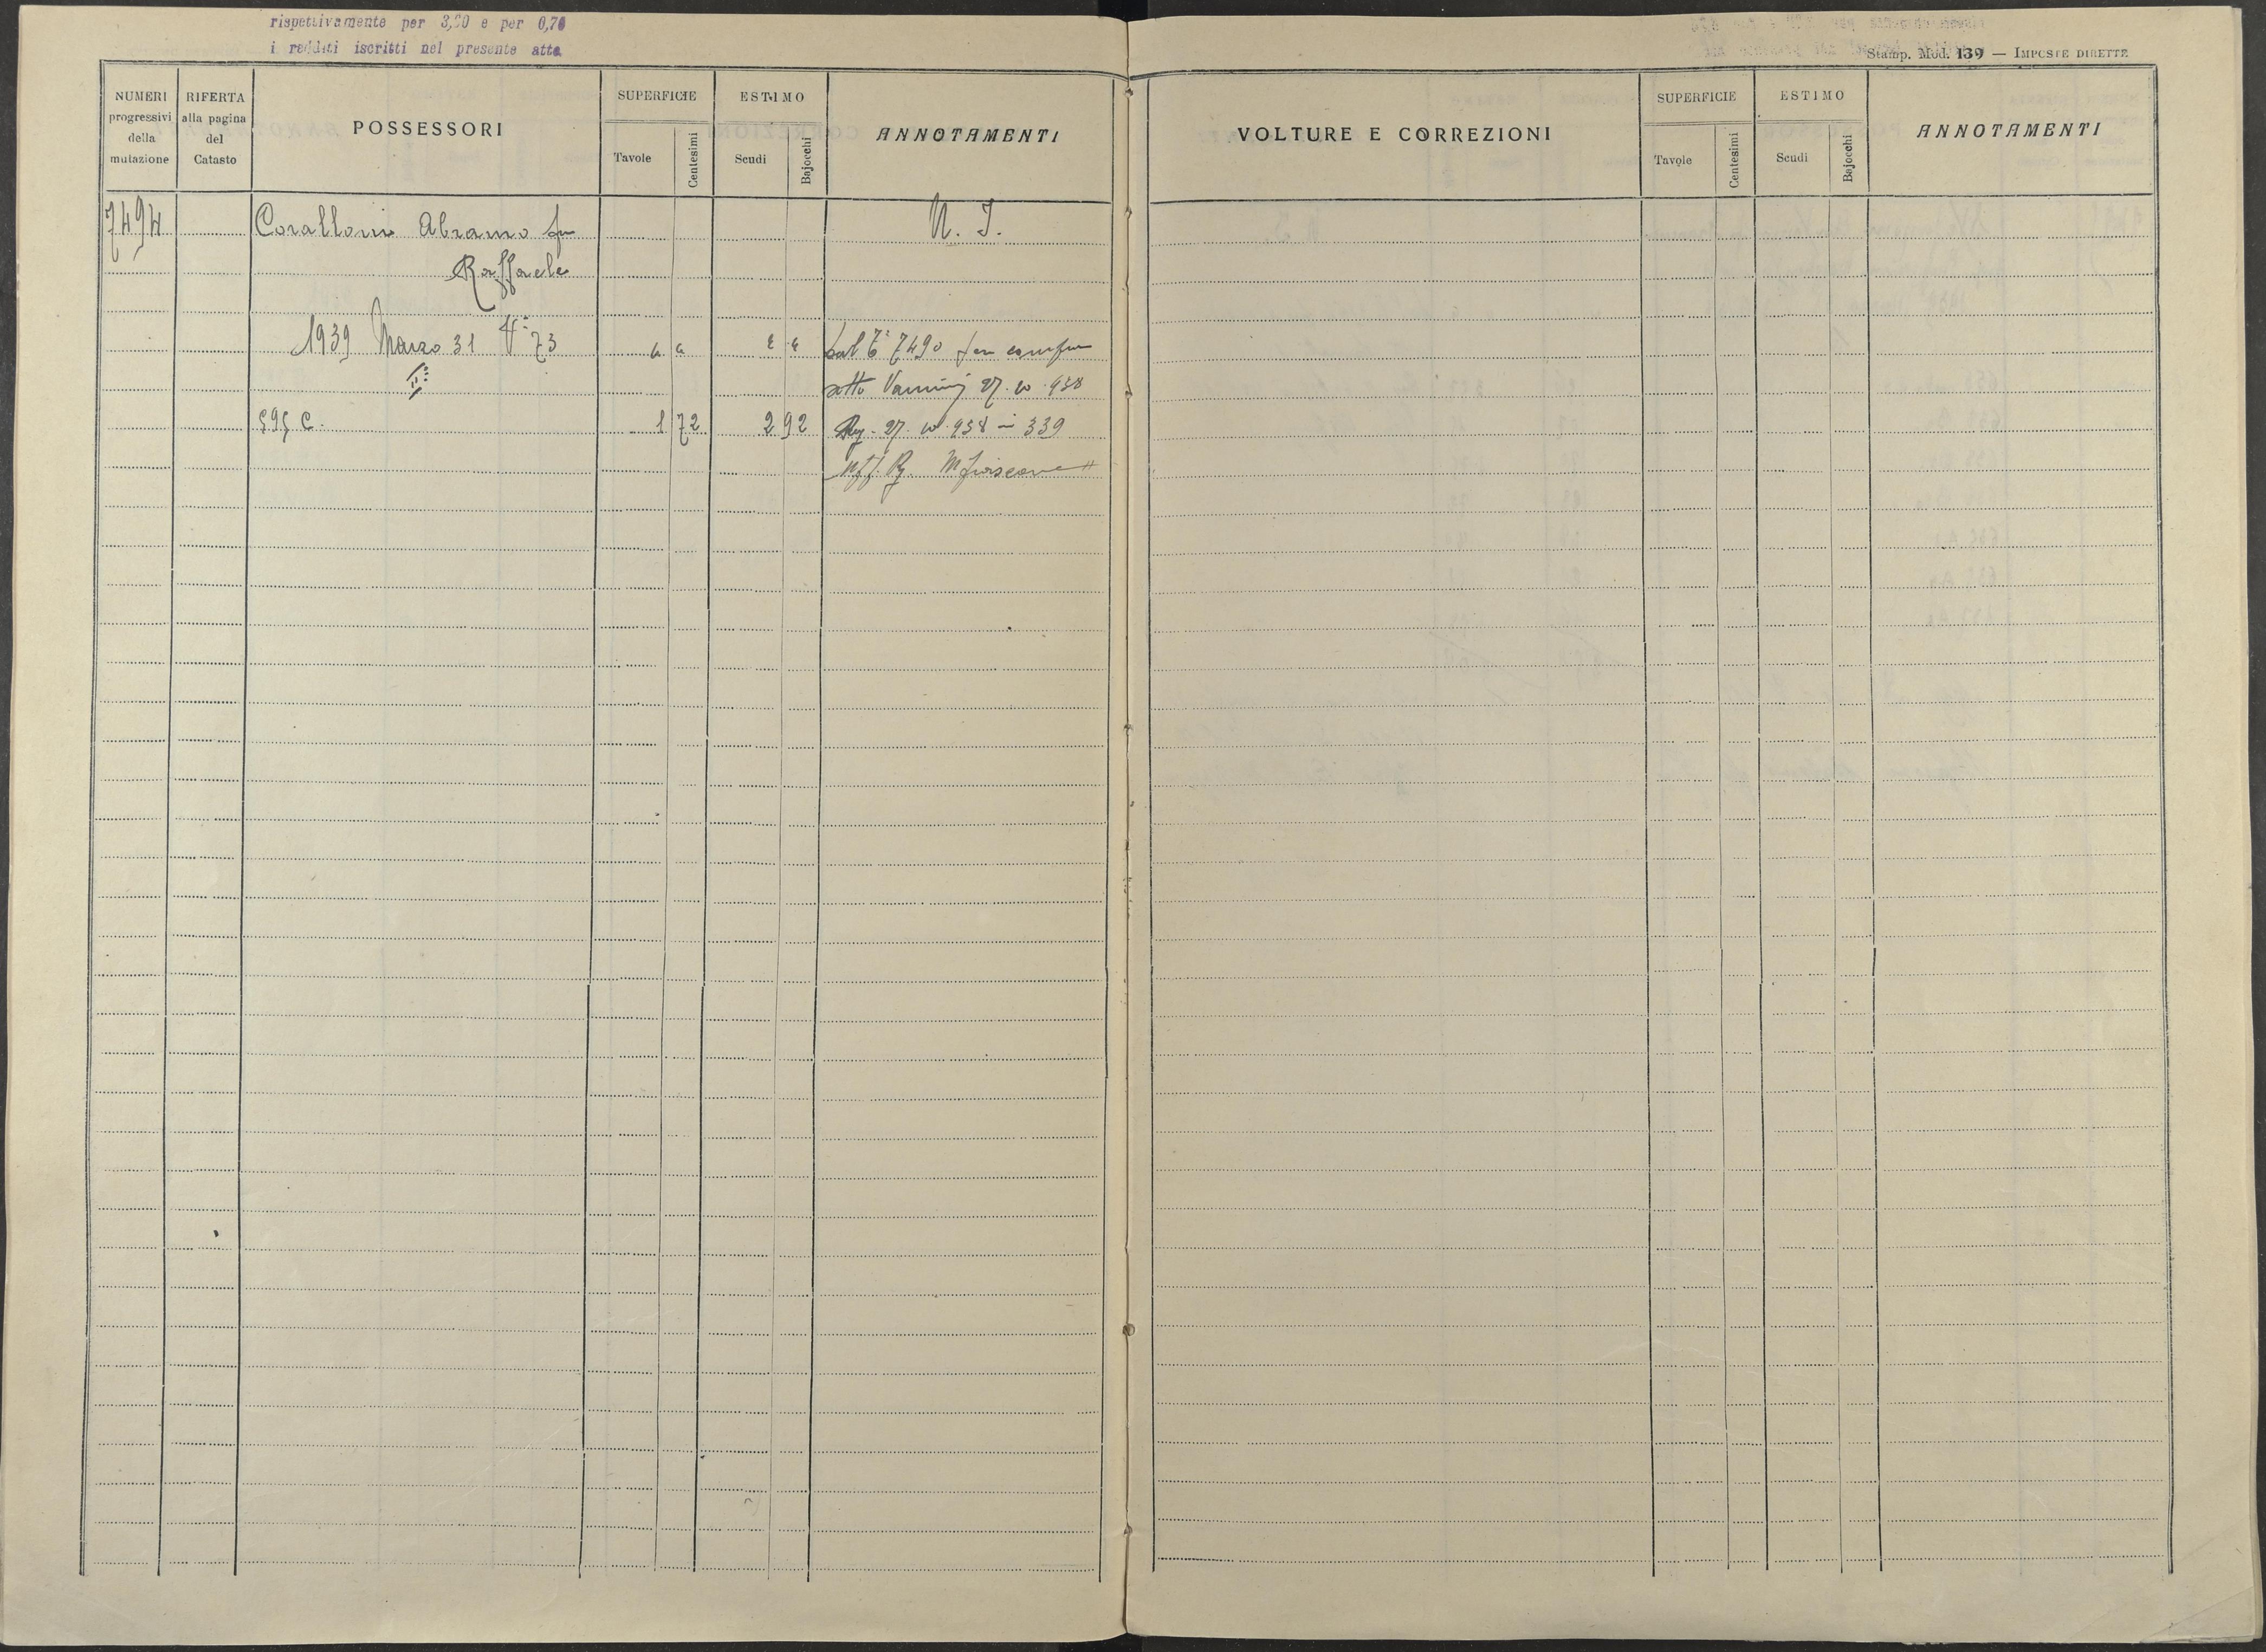 rispettivamente per 3,20 e per 0,70
i redditi iscritti nel presente atto
Stamp. Mod. 139 — IMPOSTE DIRETTE
NUMERI progressivi della mutazione
RIFERTA alla pagina del Catasto
POSSESSORI
SUPERFICIE
Tavole
Centesimi
ESTIMO
Scudi
Bajocchi
ANNOTAMENTI
VOLTURE E CORREZIONI
SUPERFICIE
Tavole
Centesimi
ESTIMO
Scudi
Bajocchi
ANNOTAMENTI
7494 Coralloni Abramo fu N. I.
Raffaele
1939 Marzo 31 V° 73
7490 per
sotto 27. 10. 938
595 C. 1 72 2 92 Reg. 27. 938 339